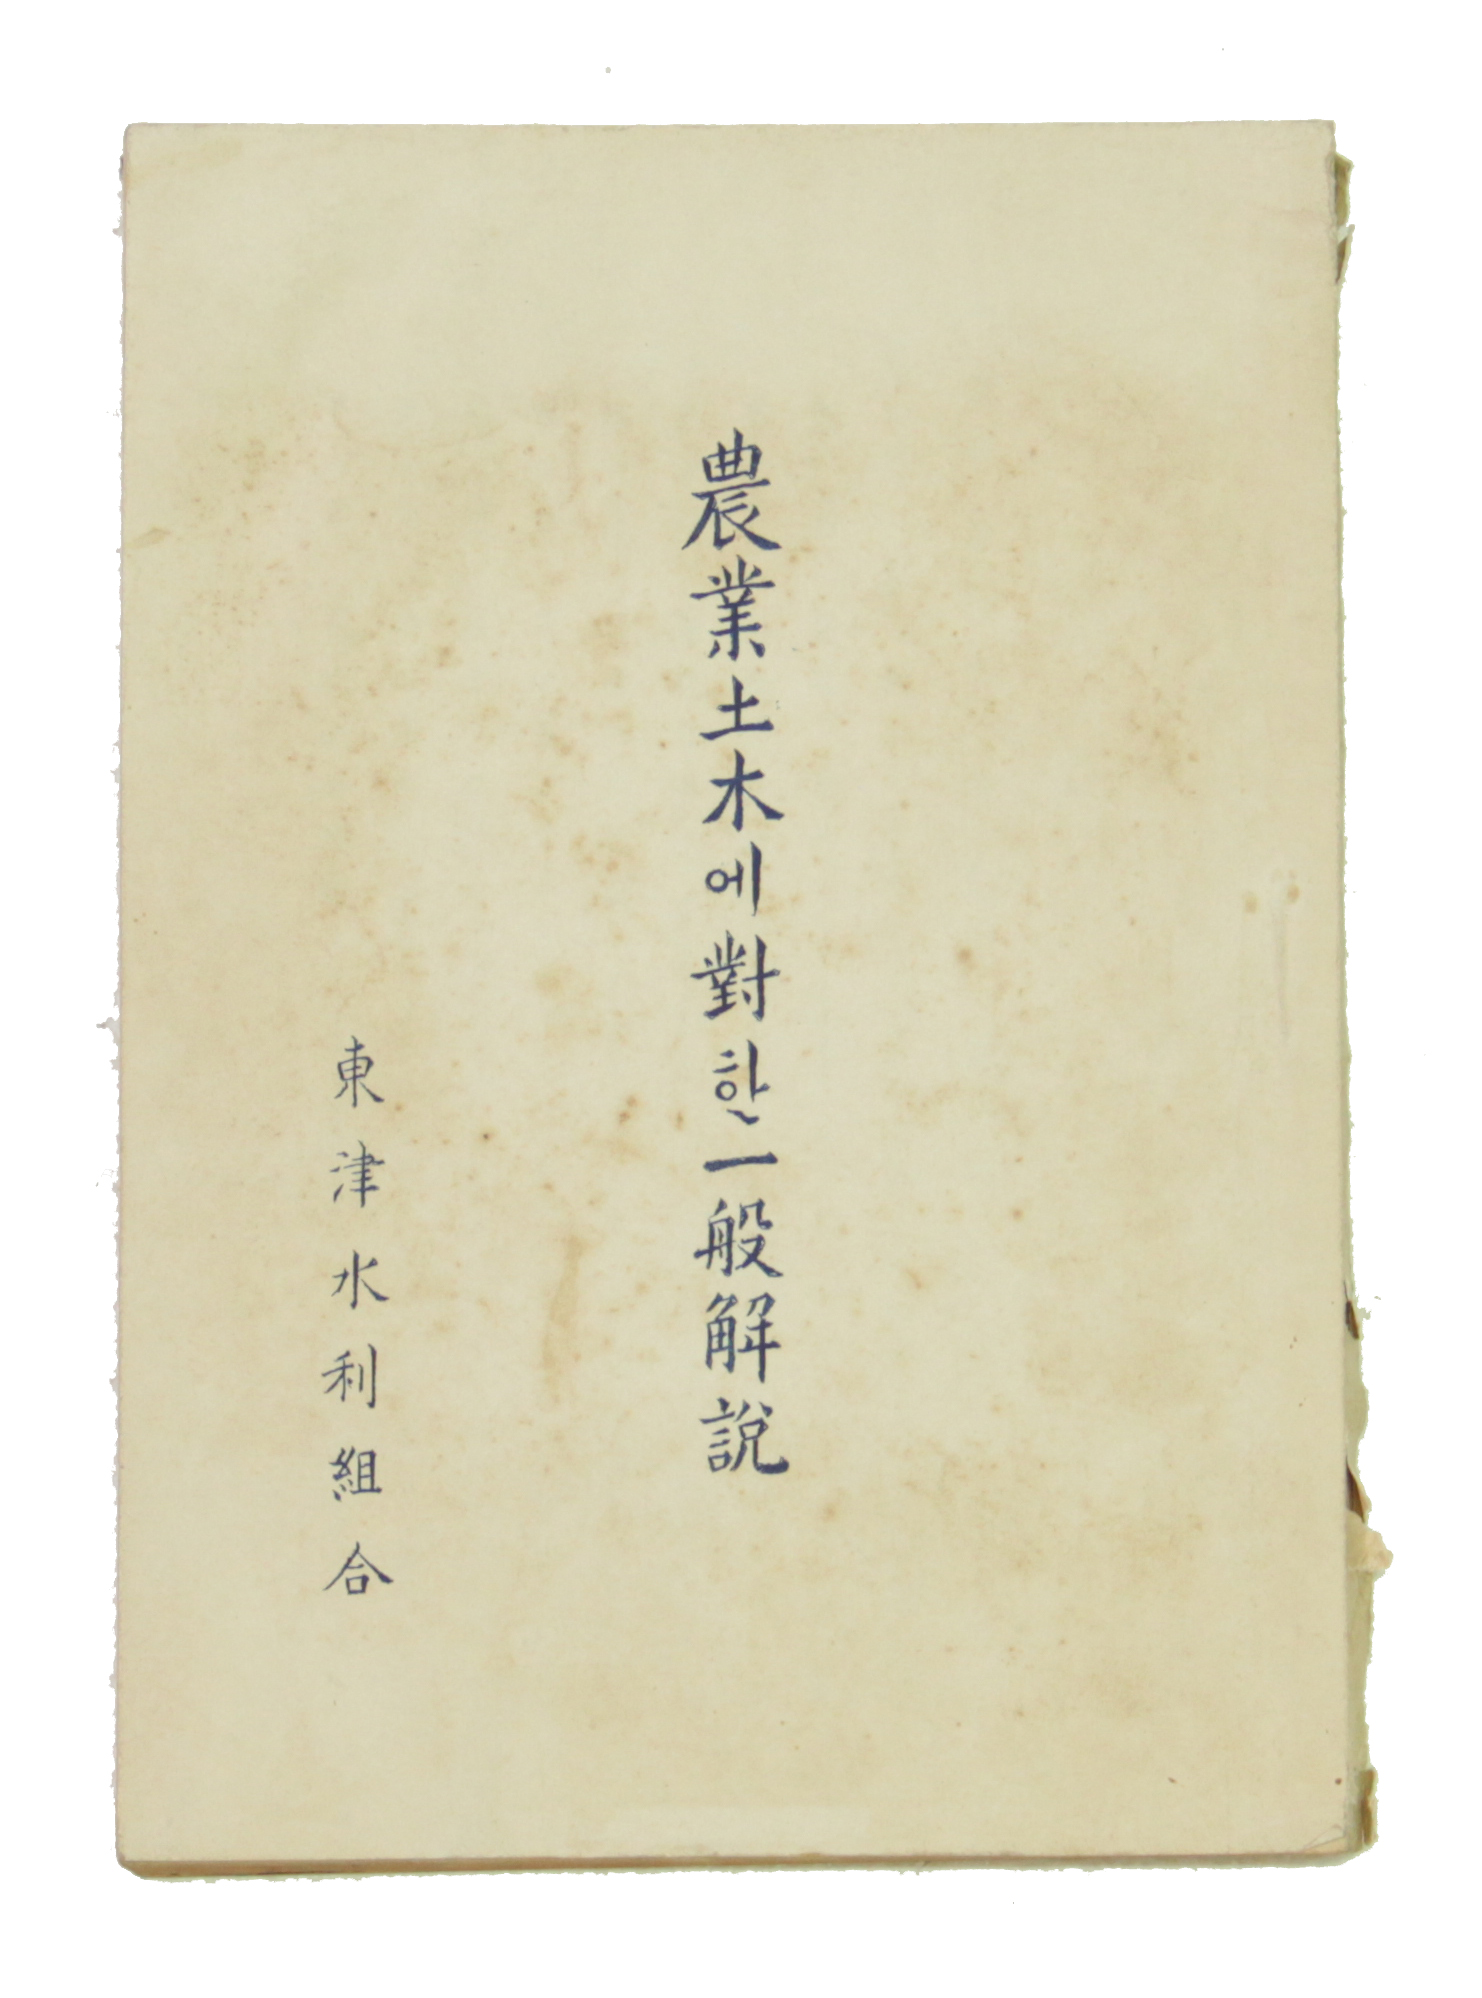 農業土木에對한一般解說
東津水利組合